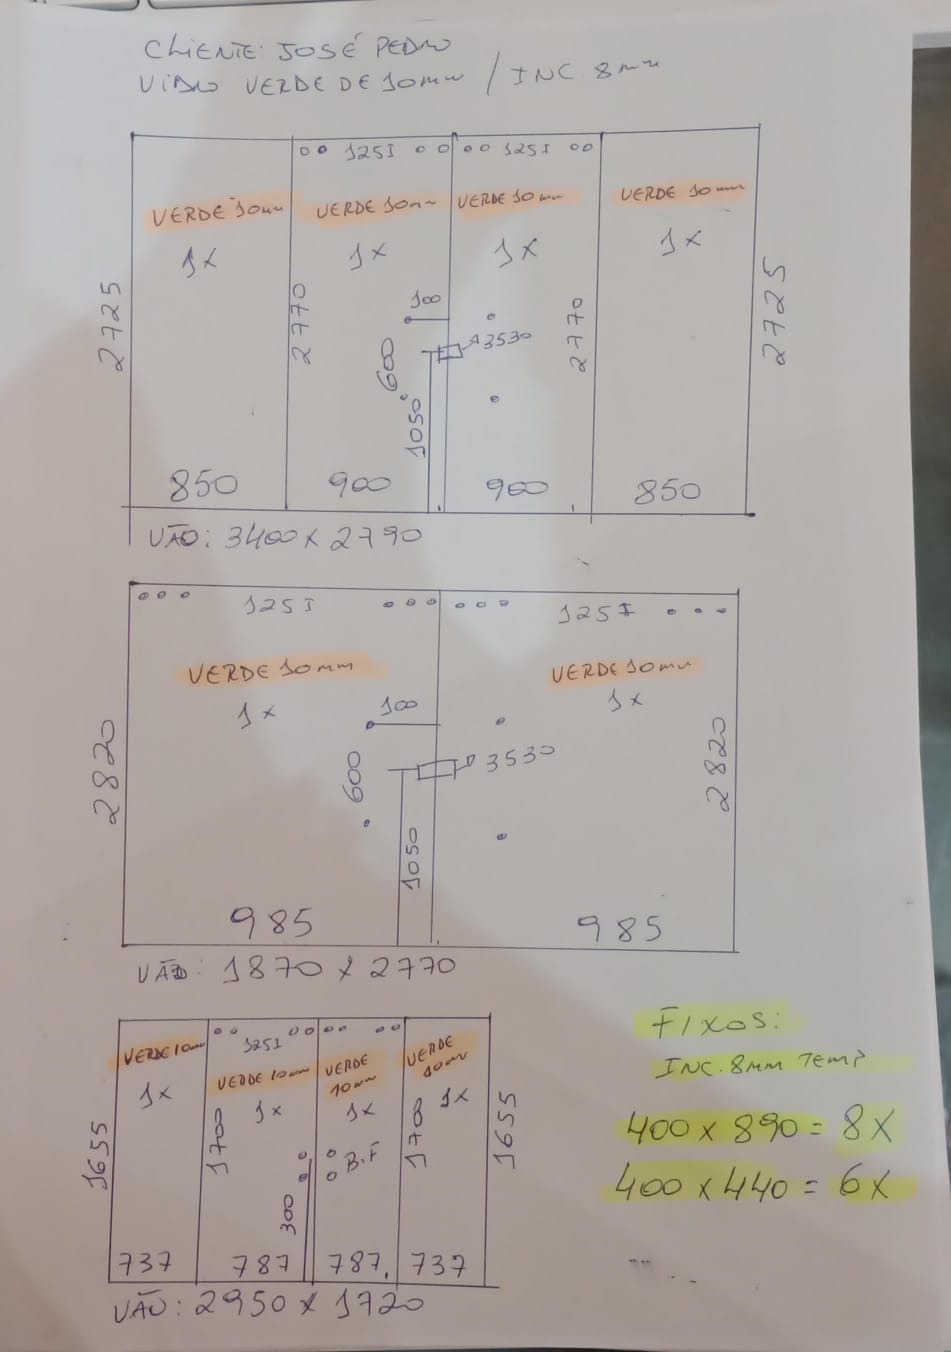 CLIENTE: JOSÉ PEDRO
VIDRO VERDE DE 10mm / INC. 8mm
1251 1251
VERDE 10mm VERDE 10mm VERDE 10mm VERDE 10mm
1x 1x 1x 1x
2725 2770 2770 2725
100
3530
600
1050
850 900 900 850
VÃO: 3400 x 2790
1251 1251
VERDE 10mm VERDE 10mm
1x 1x
100
3530
2820 600 2820
1050
985 985
VÃO: 1870 x 2770
1251
VERDE 10mm VERDE 10mm VERDE 10mm VERDE 10mm
1x 1x 1x 1x
1655 1700 B.F 1700 1655
300
737 787 787 737
VÃO: 2950 x 1720
FIXOS:
INC. 8MM TEMP
400 x 890 = 8X
400 x 440 = 6X